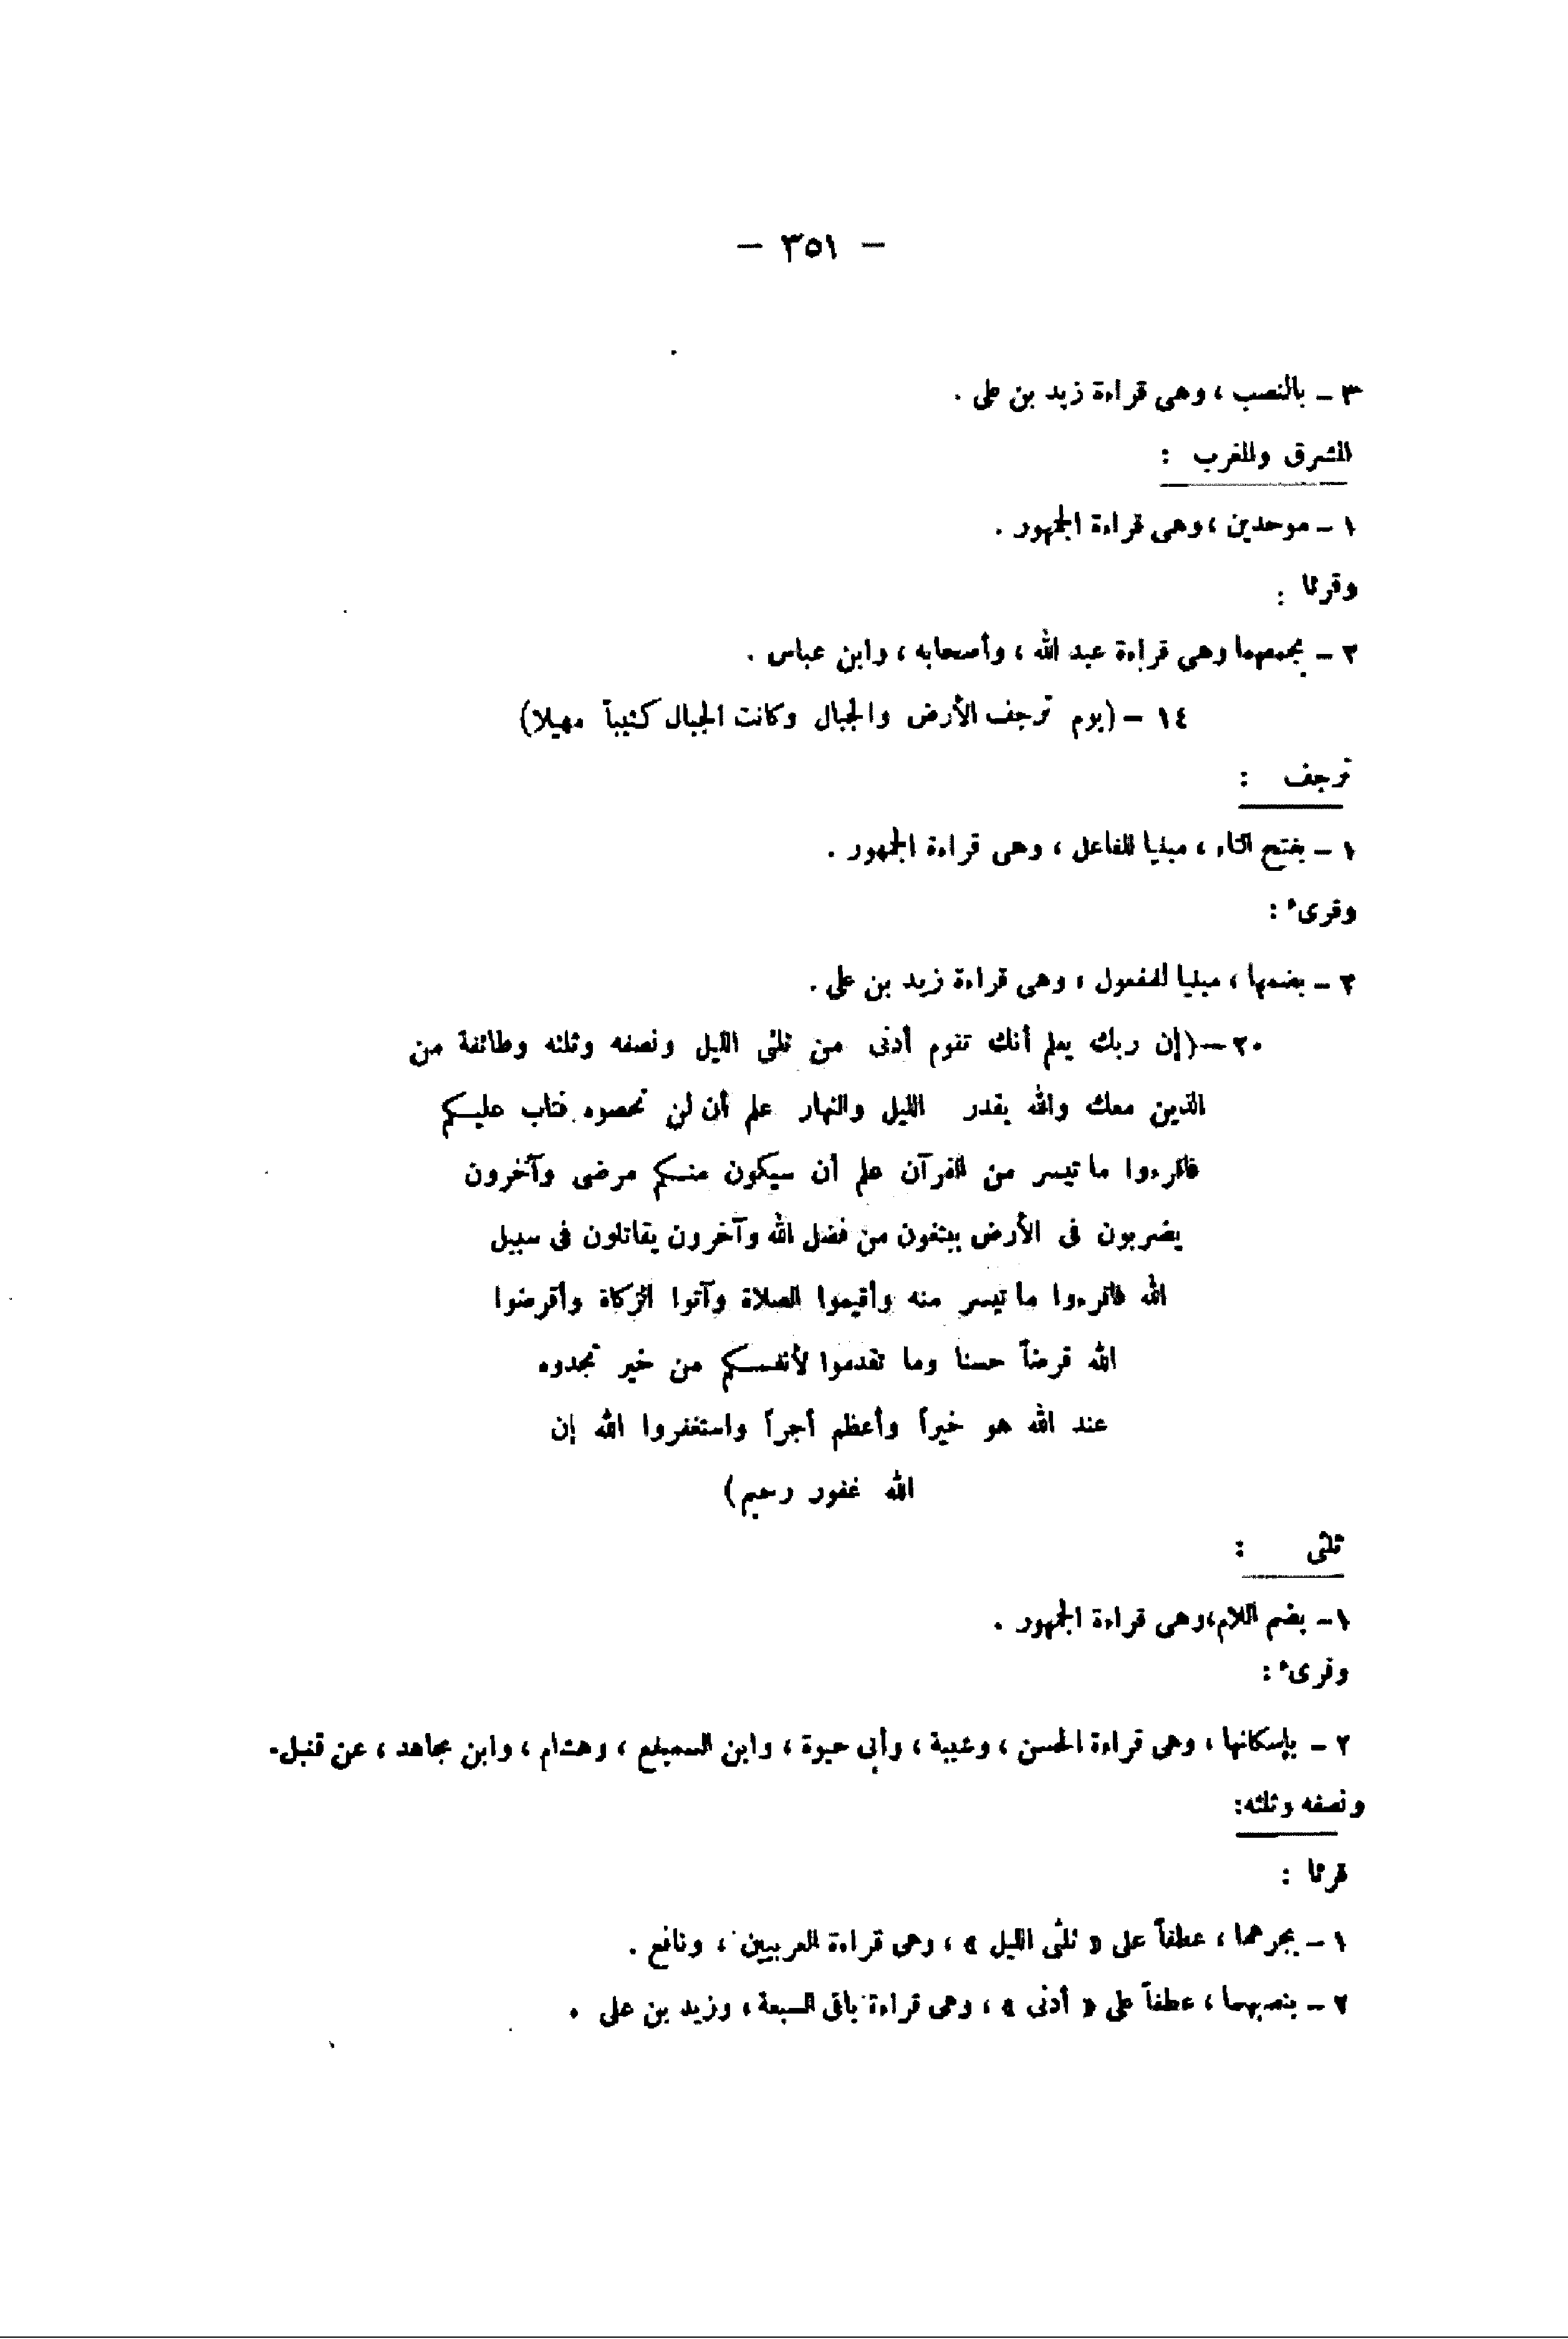 — ٣٥١ —
٣ – بالنصب ، وهى قراءة زيد بن على .
المشرق والمغرب :
١ – موحدين ، وهى قراءة الجمهور .
وقرئا :
٢ – بجمعهما وهى قراءة عبد الله ، وأصحابه ، وابن عباس .
١٤ – (يوم ترجف الأرض والجبال وكانت الجبال كثيباً مهيلا)
ترجف :
١ – بفتح التاء ، مبنيا للفاعل ، وهى قراءة الجمهور .
وقرىء :
٢ – بضمها ، مبنيا للمفعول ، وهى قراءة زيد بن على .
٢٠ – (إن ربك يعلم أنك تقوم أدنى من ثلثى الليل ونصفه وثلثه وطائفة من
الذين معك والله يقدر الليل والنهار علم أن لن تحصوه فتاب عليكم
فاقرءوا ما تيسر من القرآن علم أن سيكون منكم مرضى وآخرون
يضربون فى الأرض يبتغون من فضل الله وآخرون يقاتلون فى سبيل
الله فاقرءوا ما تيسر منه وأقيموا الصلاة وآتوا الزكاة وأقرضوا
الله قرضاً حسنا وما تقدموا لأنفسكم من خير تجدوه
عند الله هو خيراً وأعظم أجراً واستغفروا الله إن
الله غفور رحيم)
ثلثى :
١ – بضم اللام، وهى قراءة الجمهور .
وقرىء :
٢ – بإسكانها ، وهى قراءة الحسن ، وشيبة ، وأبى حيوة ، وابن السميفع ، وهشام ، وابن مجاهد ، عن قنبل.
ونصفه وثلثه:
قرئا :
١ – بجرهما ، عطفاً على « ثلثى الليل » ، وهى قراءة العربيين ، ونافع .
٢ – بنصبهما ، عطفاً على « أدنى » ، وهى قراءة باقى السبعة ، وزيد بن على .